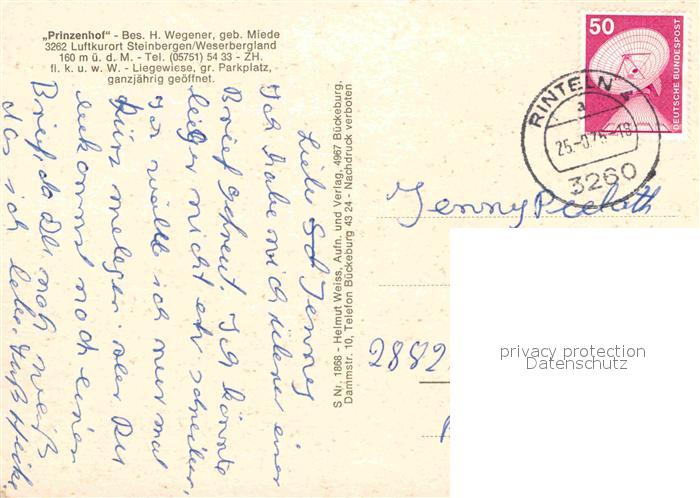 „Prinzenhof" - Bes. H. Wegener, geb. Miede
3262 Luftkurort Steinbergen/Weserbergland
160 m ü. d. M. - Tel. (05751) 54 33 - ZH.
fl. k. u. w. W. - Liegewiese, gr. Parkplatz,
ganzjährig geöffnet.
S Nr. 1868 - Helmut Weiss, Aufn. und Verlag, 4967 Bückeburg,
Dammstr. 10, Telefon Bückeburg 43 24 - Nachdruck verboten
50
DEUTSCHE BUNDESPOST
RINTELN
a
3260
Jenny
2882
Jenny
Ich habe mich einen
Brief Ich konnte
nicht schreiben,
Ich wollte ich nur mal
Du
bekommst noch einen
Brief, da Du noch weißt
das ich lebe. Gruß Heike
privacy protection
Datenschutz